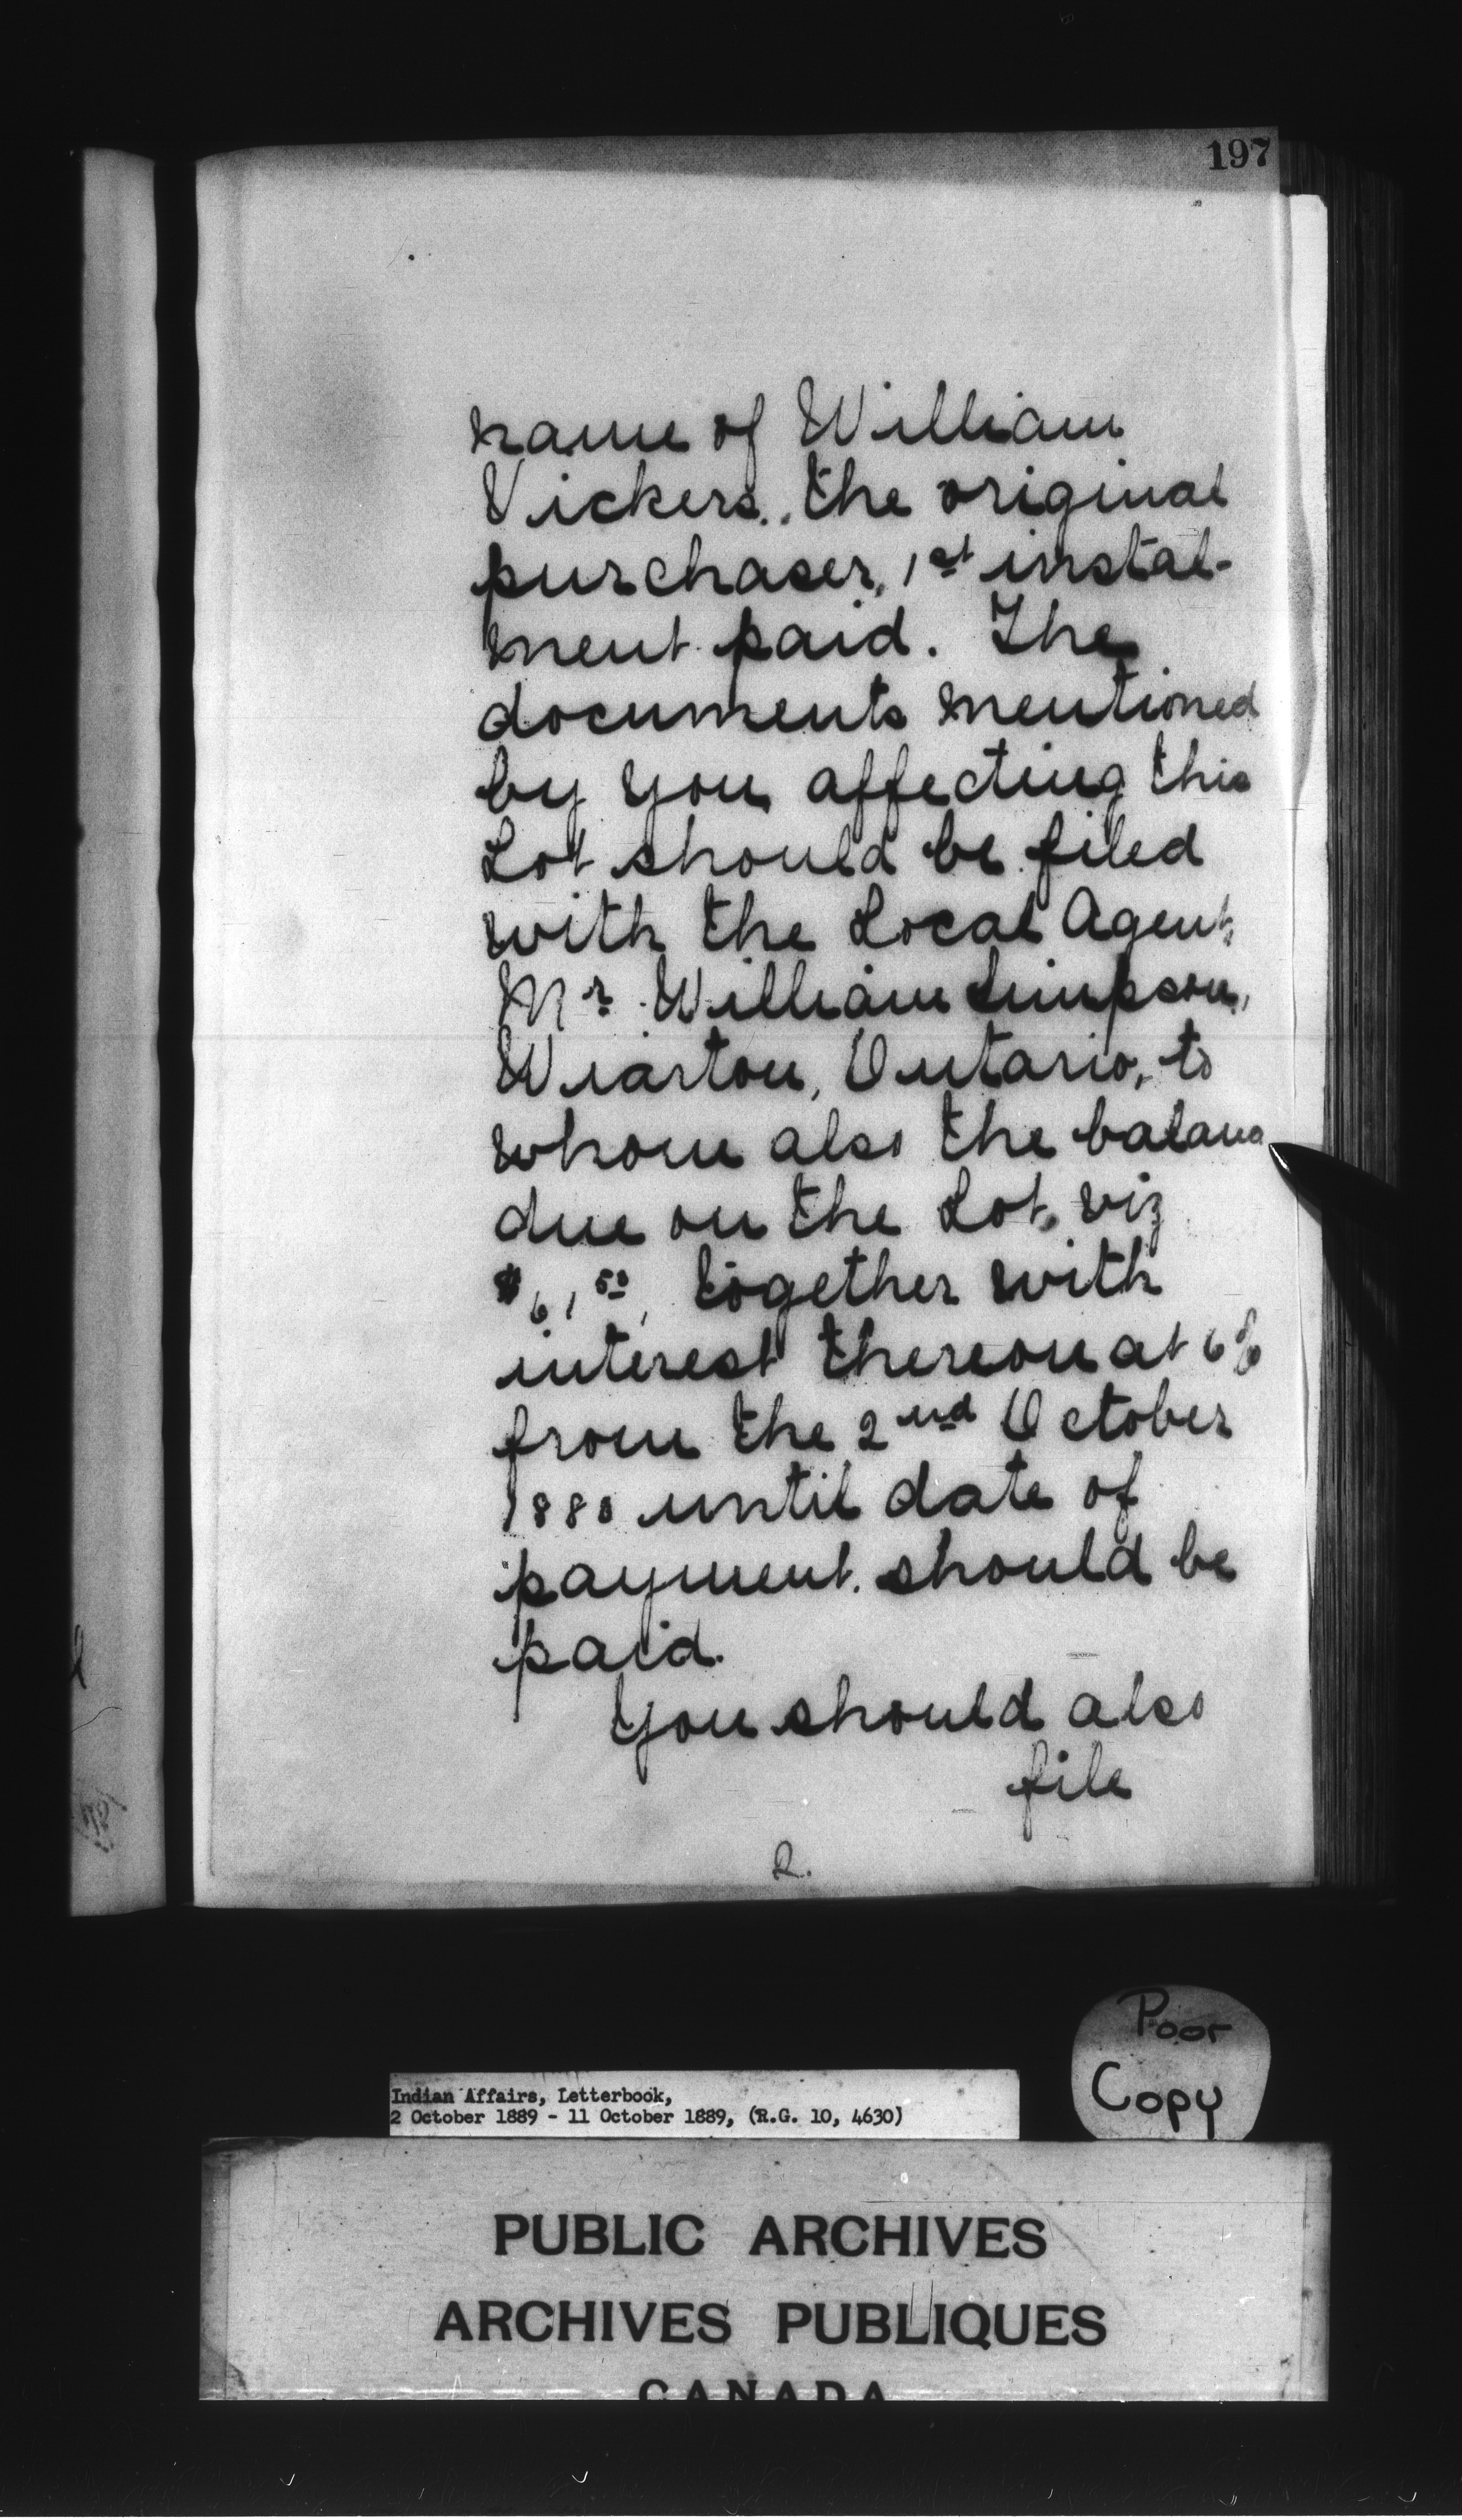 197
name of William
Vickers, the original
purchaser, 1st instal-
ment paid. The
documents mentioned
by you affecting this
Lot should be filed
with the Local Agent,
Mr William Simpson,
Wiarton, Ontario, to
whom also the balance
due on the Lot, viz
$61.50, together with
interest thereon at 6%
from the 2nd October
1880 until date of
payment should be
paid.
You should also
file
2.
Poor
Copy
Indian Affairs, Letterbook,
2 October 1889 - 11 October 1889, (R.G. 10, 4630)
PUBLIC ARCHIVES
ARCHIVES PUBLIQUES
CANADA